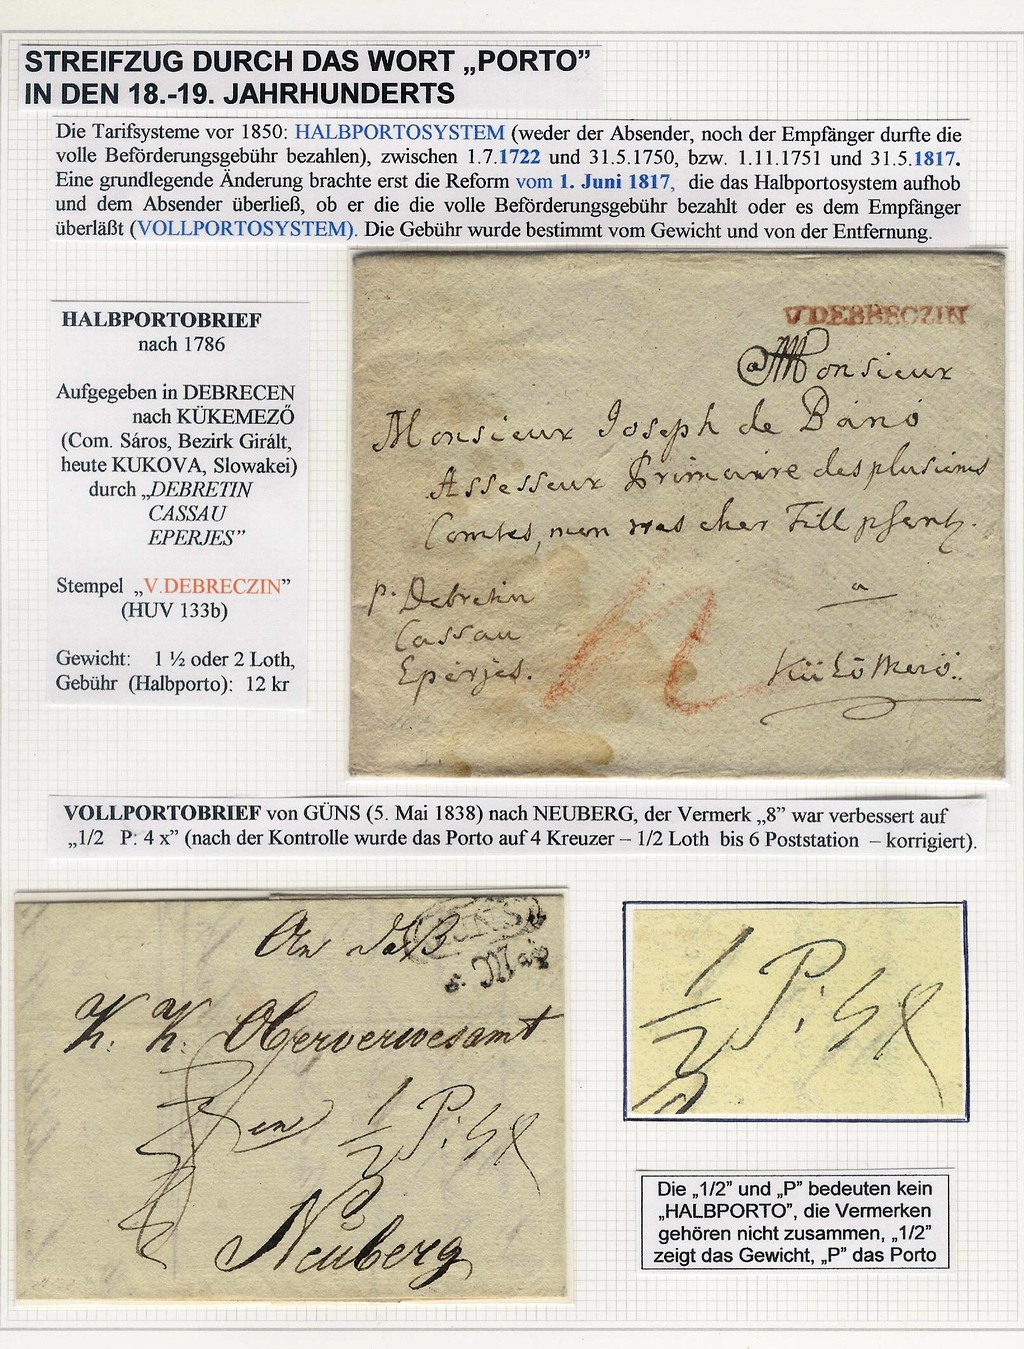 STREIFZUG DURCH DAS WORT „PORTO”
IN DEN 18.-19. JAHRHUNDERTS
Die Tarifsysteme vor 1850: HALBPORTOSYSTEM (weder der Absender, noch der Empfänger durfte die
volle Beförderungsgebühr bezahlen), zwischen 1.7.1722 und 31.5.1750, bzw. 1.11.1751 und 31.5.1817.
Eine grundlegende Änderung brachte erst die Reform vom 1. Juni 1817, die das Halbportosystem aufhob
und dem Absender überließ, ob er die die volle Beförderungsgebühr bezahlt oder es dem Empfänger
überläßt (VOLLPORTOSYSTEM). Die Gebühr wurde bestimmt vom Gewicht und von der Entfernung.
HALBPORTOBRIEF
nach 1786
Aufgegeben in DEBRECEN
nach KÜKEMEZŐ
(Com. Sáros, Bezirk Girált,
heute KUKOVA, Slowakei)
durch „DEBRETIN
CASSAU
EPERJES”
Stempel „V.DEBRECZIN”
(HUV 133b)
Gewicht: 1 ½ oder 2 Loth,
Gebühr (Halbporto): 12 kr
V.DEBRECZIN
a Monsieur
Monsieur Joseph de Bánó
Assesseur Primaire des plusieurs
Comtes, mon cher
p. Debretin
Cassau
Eperjes.
a
VOLLPORTOBRIEF von GÜNS (5. Mai 1838) nach NEUBERG, der Vermerk „8” war verbessert auf
„1/2 P: 4 x” (nach der Kontrolle wurde das Porto auf 4 Kreuzer – 1/2 Loth bis 6 Poststation – korrigiert).
GÜNS
5. Mai
An daß
K. K. Oberverwesamt
zu
1/2 P: 4 x
Neuberg
1/2 P: 4 x
Die „1/2” und „P” bedeuten kein
„HALBPORTO”, die Vermerken
gehören nicht zusammen, „1/2”
zeigt das Gewicht, „P” das Porto